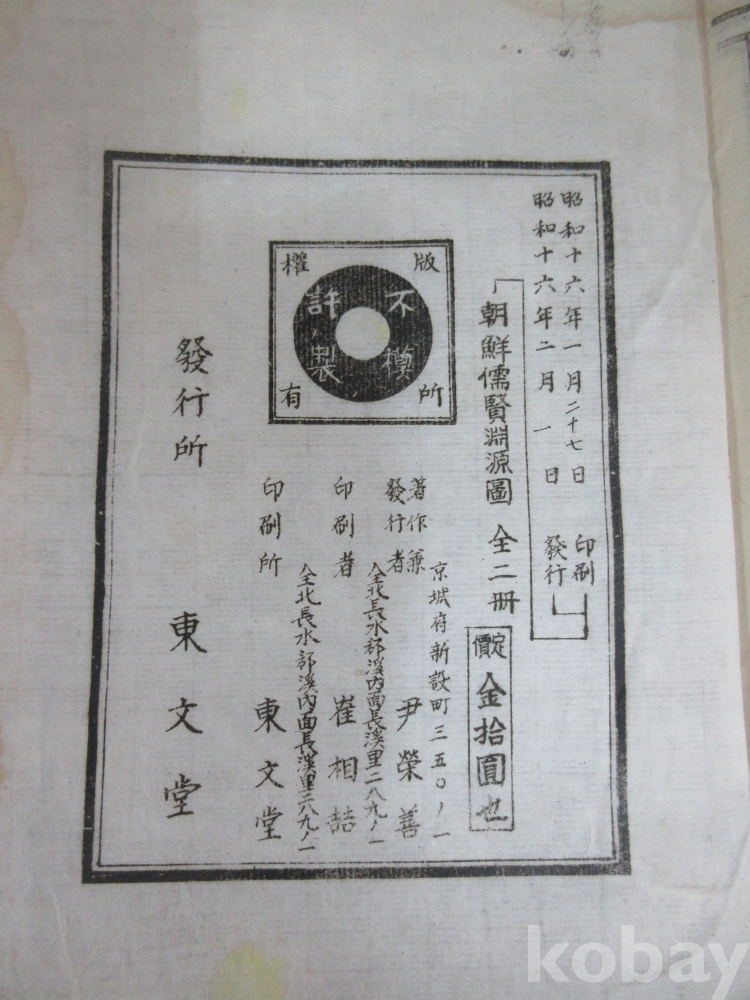 昭和十六年一月二十七日 印刷
昭和十六年二月一日 發行
朝鮮儒賢淵源圖 全二冊
定價 金拾圓也
版權所有
不許模製
京城府新設町三五〇ノ一
著作兼發行者 尹榮善
全北長水郡溪內面長溪里二八九ノ一
印刷者 崔相喆
全北長水郡溪內面長溪里二八九ノ一
印刷所 東文堂
發行所 東文堂
kobay